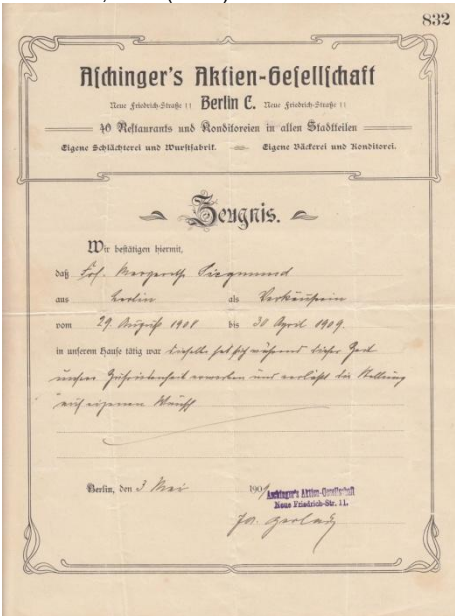 832
Aschinger's Aktien-Gesellschaft
Neue Friedrich-Straße 11 Berlin C. Neue Friedrich-Straße 11
40 Restaurants und Konditoreien in allen Stadtteilen
Eigene Schlächterei und Wurstfabrik. Eigene Bäckerei und Konditorei.
Zeugnis.
Wir bestätigen hiermit,
daß Frl. Margarethe Siegmund
aus Berlin als Verkäuferin
vom 29 August 1908 bis 30 April 1909.
in unserem Hause tätig war dieselbe hat sich während dieser Zeit
unsere Zufriedenheit erworben und verläßt die Stellung
auf eigenen Wunsch
Berlin, den 3 Mai 1909
Aschinger's Aktien-Gesellschaft
Neue Friedrich-Str. 11.